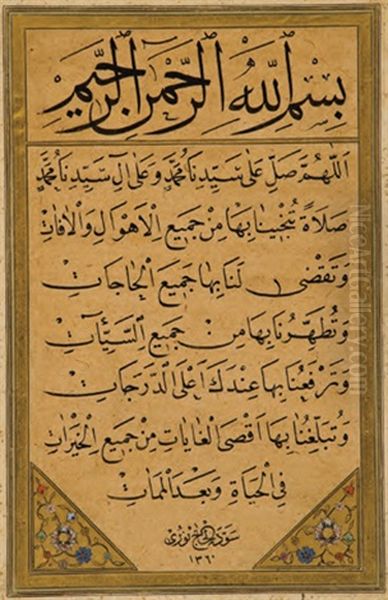 بسم الله الرحمن الرحيم
اللهم صل على سيدنا محمد وعلى آل سيدنا محمد
صلاة تنجينا بها من جميع الاهوال والافات
وتقضى لنا بها جميع الحاجات
وتطهرنا بها من جميع السيئات
وترفعنا بها عندك اعلى الدرجات
وتبلغنا بها اقصى الغايات من جميع الخيرات
فى الحياة وبعد الممات
سوده الحاج نورى
١٣٦٠